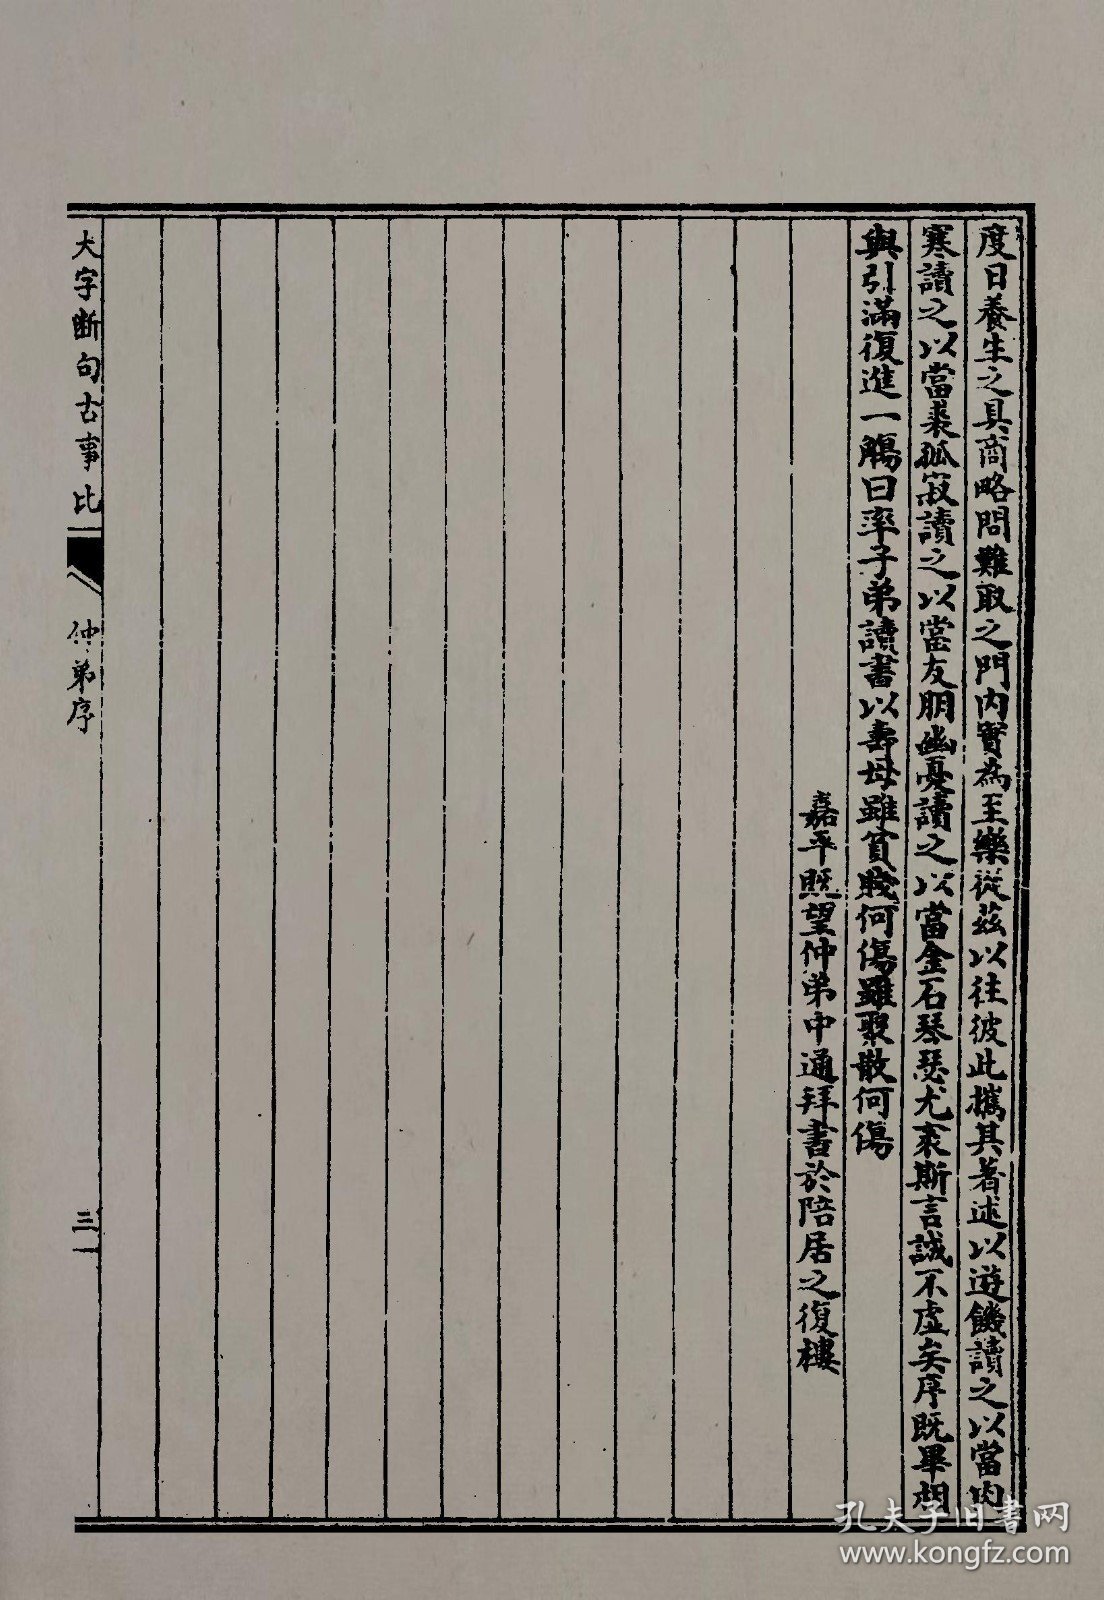 度日養生之具商略問難取之門内實為至樂從茲以往彼此攜其著述以遊饑讀之以當肉
寒讀之以當裘孤寂讀之以當友朋幽憂讀之以當金石琴瑟尤袤斯言誠不虛矣序既畢相
與引滿復進一觴曰率子弟讀書以壽母雖貧賤何傷雖聚散何傷
嘉平既望仲弟中通拜書於陪居之復樓
大字斷句古事比
仲弟序
三一
孔夫子旧书网
www.kongfz.com